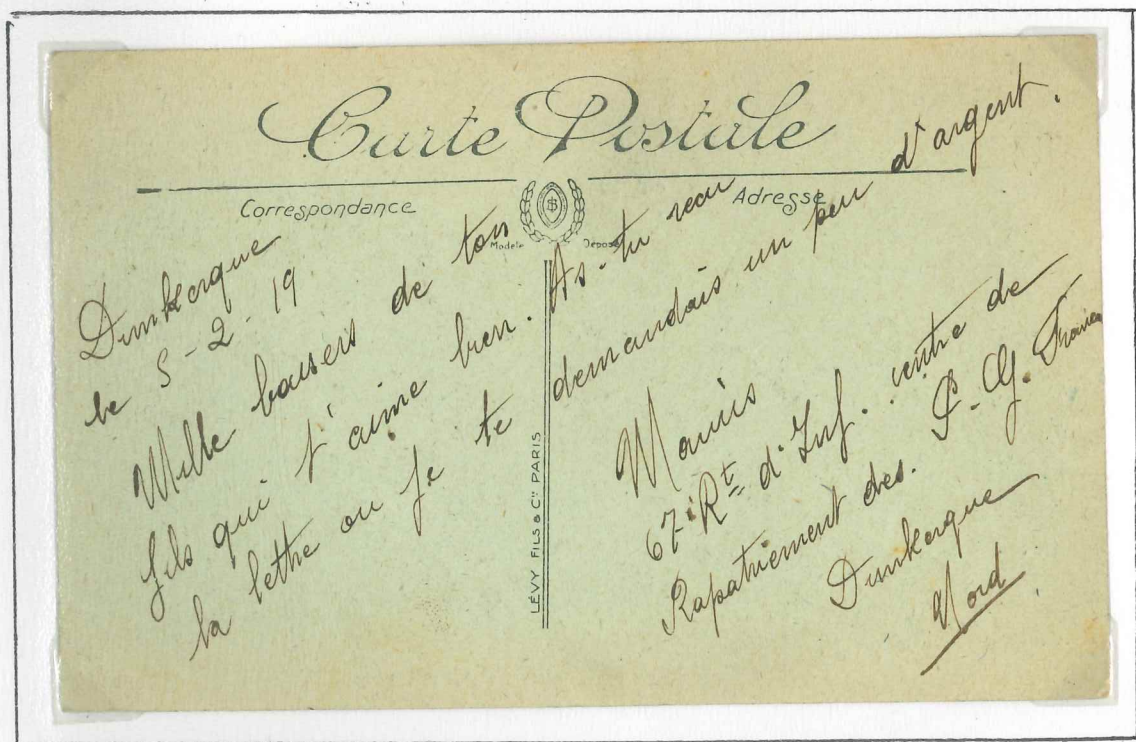 Carte Postale
Correspondance
Adresse
Modèle Déposé
LÉVY FILS & Cie PARIS
Dunkerque
le 5-2-19
Mille baisers de ton
fils qui t'aime bien. As-tu recu
la lettre ou je te demandais un peu d'argent.
Mauris
67e Rt d'Inf. centre de
Rapatriement des. P.G. Francs
Dunkerque
Nord